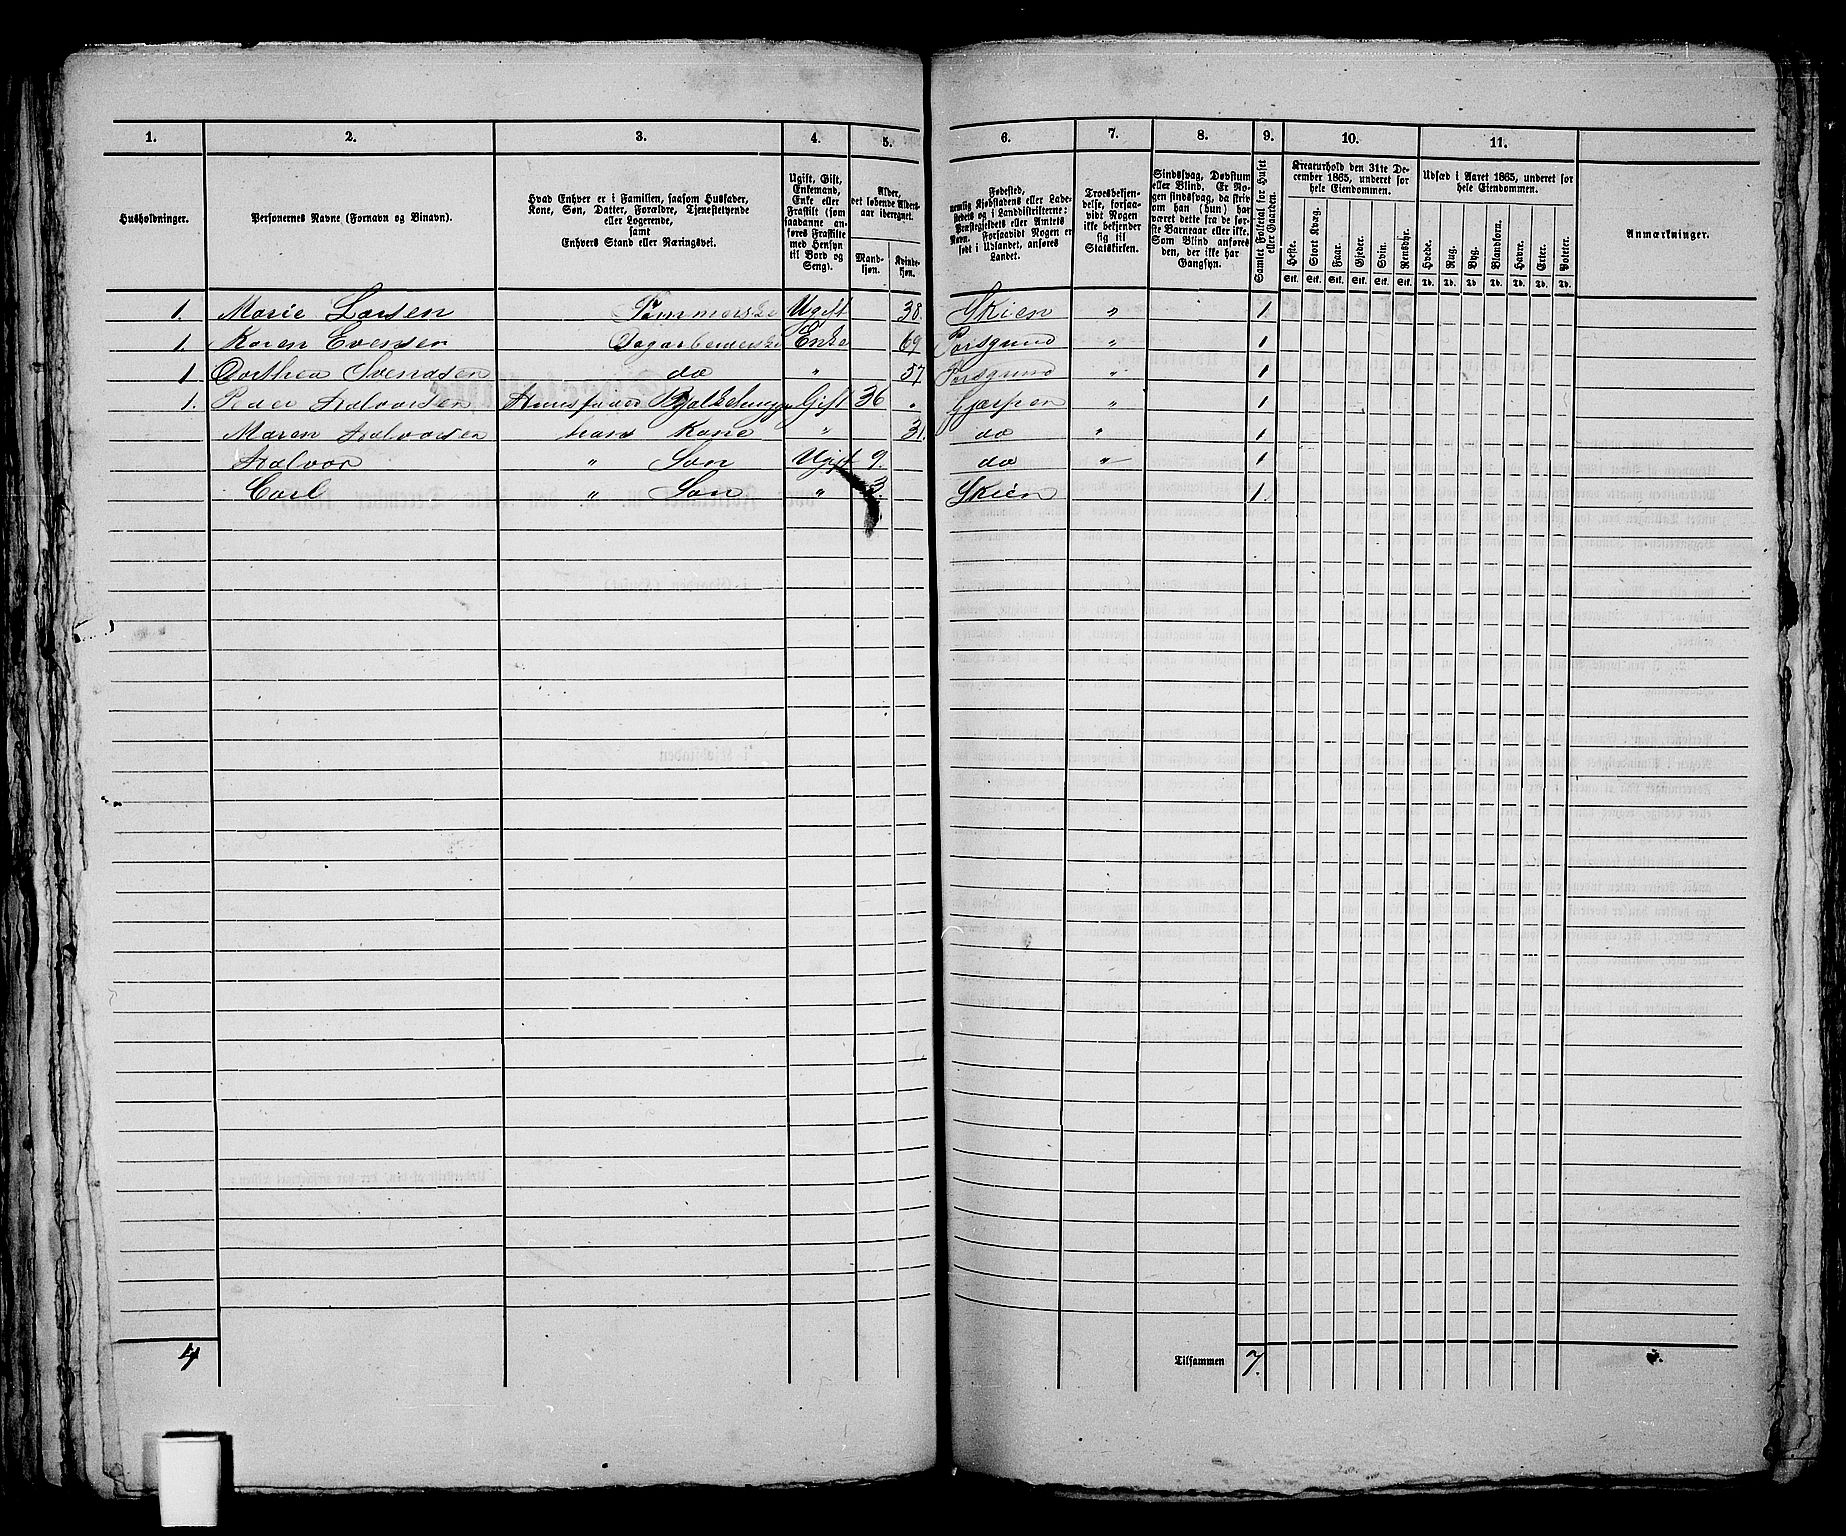 1. 2. 3. 4. 5. 6. 7. 8. 9. 10. 11.
Husholdninger.
Personernes Navne (Fornavn og Binavn).
Hvad Enhver er i Familien, saasom Husfader,
Kone, Søn, Datter, Forældre, Tjenestetyende
eller Logerende,
samt
Enhvers Stand eller Næringsvei.
Ugift, Gift,
Enkemand,
Enke eller
Fraskilt (som
saadanne an-
føres Fraskilte
med Hensyn
til Bord og
Seng).
Alder,
det løbende Alders-
aar iberegnet.
Mand-
kjøn.
Kvinde-
kjøn.
Fødested,
nemlig Kjøbstadens eller Lade-
stedets og i Landdistrikterne:
Præstegjeldets eller Amtets
Navn. Forsaavidt Nogen er
født i Udlandet, anføres
Landet.
Troesbekjen-
delse, forsaa-
vidt Nogen
ikke bekjender
sig til
Statskirken.
Sindssvag, Døvstum
eller Blind. Er No-
gen sindssvag, da skriv
om han (hun) har
været dette fra de før-
ste Barneaar eller ikke.
Som Blind anføres
den, der ikke har
Gangsyn.
Samlet Folketal for Huset
eller Gaarden.
Kreaturhold den 31te De-
cember 1865, underet for
hele Eiendommen.
Heste. Stort Kvæg. Faar. Gjeder. Svin. Rensdyr.
Stk. Stk. Stk. Stk. Stk. Stk.
Udsæd i Aaret 1865, underet for
hele Eiendommen.
Hvede. Rug. Byg. Blandkorn. Havre. Erter. Poteter.
Td. Td. Td. Td. Td. Td. Td.
Anmærkninger.
1. Marie Larsen Ugift 38. Skien " 1
1. Karen Evensen Enke 69 Porsgrund " 1
1 Dorthea Svendsen do " 57 Porsgrund " 1
1. Peder Halvorsen Huusfader Gift 36 " Gjerpen " 1
Maren Halvorsen hans Kone " 31. do " 1
Halvor " Søn Ugift 9. do " 1
Carl " Søn " 3. Skien 1.
4 Tilsammen 7.